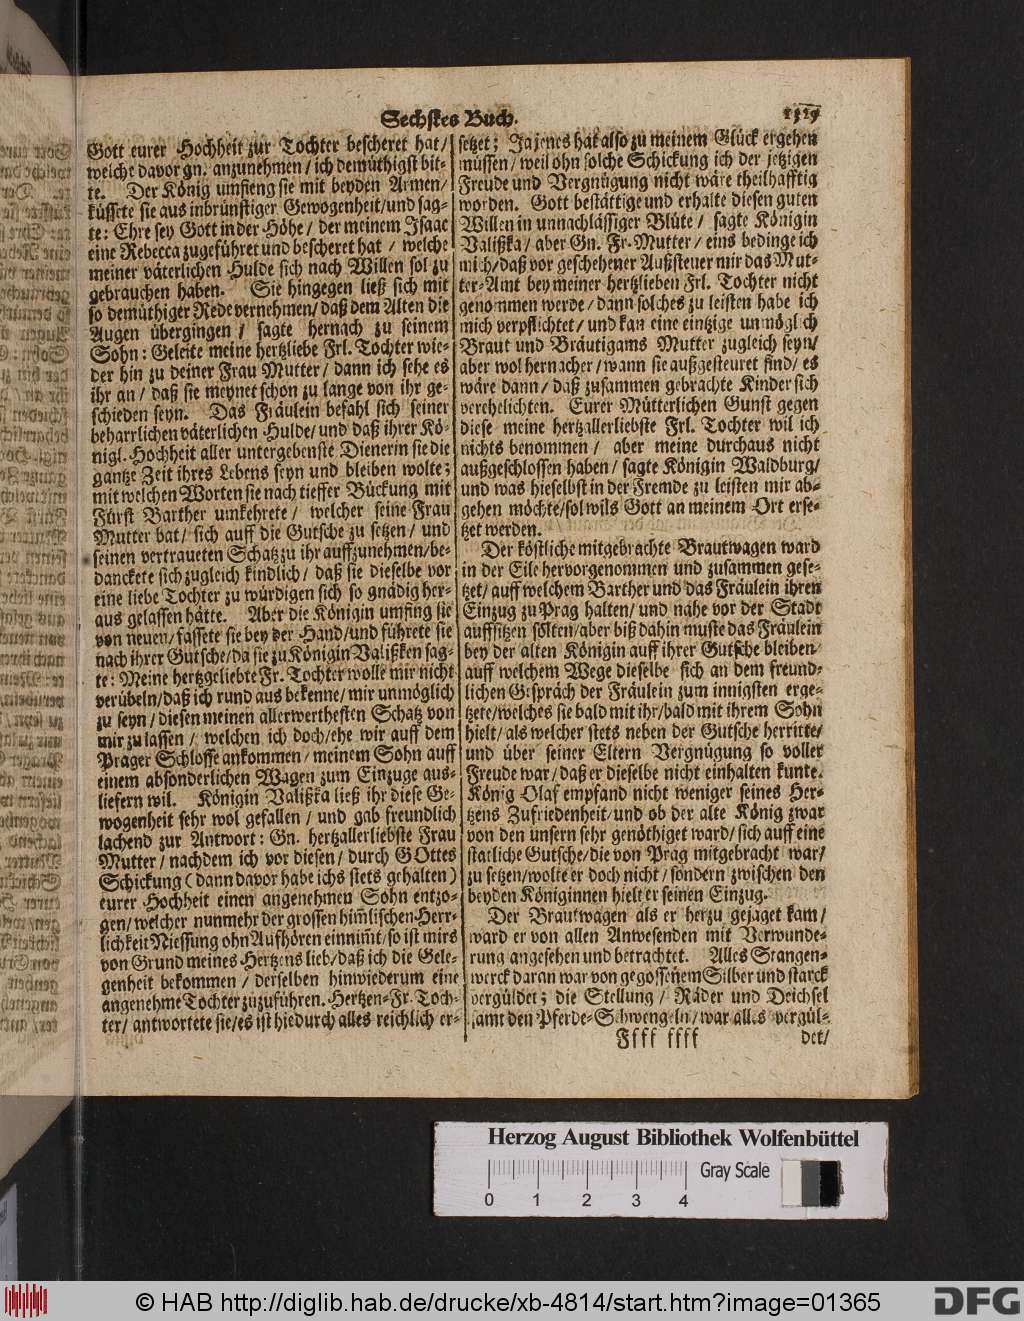 Sechstes Buch.
Gott eurer Hochheit zur Tochter bescheret hat/
welche davor gn. anzunehmen / ich demüthigst bit-
te. Der König umfieng sie mit beyden Armen/
küssete sie aus inbrünstiger Gewogenheit/und sag-
te: Ehre sey Gott in der Höhe / der meinem Isaac
eine Rebecca zugeführet und bescheret hat / welche
meiner väterlichen Hulde sich nach Willen sol zu
gebrauchen haben. Sie hingegen ließ sich mit
so demüthiger Rede vernehmen/ daß dem Alten die
Augen übergingen / sagte hernach zu seinem
Sohn: Geleite meine hertzliebe Frl. Tochter wie-
der hin zu deiner Frau Mutter / dann ich sehe es
ihr an / daß sie meynet schon zu lange von ihr ge-
schieden seyn. Das Fräulein befahl sich seiner
beharrlichen väterlichen Hulde/ und daß ihrer Kö-
nigl. Hochheit aller untergebenste Dienerin sie die
gantze Zeit ihres Lebens seyn und bleiben wolte;
mit welchen Worten sie nach tieffer Bückung mit
Fürst Barther umkehrete / welcher seine Frau
Mutter bat/ sich auff die Gutsche zu setzen / und
seinen vertraueten Schatz zu ihr auffzunehmen/be-
danckete sich zugleich kindlich / daß sie dieselbe vor
eine liebe Tochter zu würdigen sich so gnädig her-
aus gelassen hätte. Aber die Königin umfing sie
von neuen/ fassete sie bey der Hand/und führete sie
nach ihrer Gutsche/da sie zu Königin Valißken sag-
te: Meine hertzgeliebte Fr. Tochter wolle mir nicht
verübeln/daß ich rund aus bekenne/ mir unmöglich
zu seyn / diesen meinen allerwerthesten Schatz von
mir zu lassen / welchen ich doch/ehe wir auff dem
Prager Schlosse ankommen / meinem Sohn auff
einem absonderlichen Wagen zum Einzuge aus-
liefern wil. Königin Valißka ließ ihr diese Ge-
wogenheit sehr wol gefallen / und gab freundlich
lachend zur Antwort: Gn. hertzallerliebste Frau
Mutter / nachdem ich vor diesen / durch GOttes
Schickung (dann davor habe ichs stets gehalten)
eurer Hochheit einen angenehmen Sohn entzo-
gen/ welcher nunmehr der grossen him̃lischen Herr-
lichkeit Niessung ohn Aufhören einnim̃t/ so ist mirs
von Grund meines Hertzens lieb/ daß ich die Gele-
genheit bekommen / derselben hinwiederum eine
angenehme Tochter zuzuführen. Hertzen-Fr. Toch-
ter/ antwortete sie/es ist hiedurch alles reichlich er-
setzet; Ja jenes hat also zu meinem Glück ergehen
müssen / weil ohn solche Schickung ich der jetzigen
Freude und Vergnügung nicht wäre theilhafftig
worden. Gott bestättige und erhalte diesen guten
Willen in unnachlässiger Blüte / sagte Königin
Valißka / aber Gn. Fr. Mutter / eins bedinge ich
mich/daß vor geschehener Außsteuer mir das Mut-
ter-Amt bey meiner hertzlieben Frl. Tochter nicht
genommen werde / dann solches zu leisten habe ich
mich verpflichtet / und kan eine eintzige unmöglich
Braut und Bräutigams Mutter zugleich seyn/
aber wol hernacher / wann sie außgesteuret sind/ es
wäre dann / daß zusammen gebrachte Kinder sich
verehelichten. Eurer Mütterlichen Gunst gegen
diese meine hertzallerliebste Frl. Tochter wil ich
nichts benommen / aber meine durchaus nicht
außgeschlossen haben / sagte Königin Waldburg/
und was hieselbst in der Fremde zu leisten mir ab-
gehen möchte/sol wils Gott an meinem Ort erse-
tzet werden.
Der köstliche mitgebrachte Brautwagen ward
in der Eile hervorgenommen und zusammen gese-
tzet/ auff welchem Barther und das Fräulein ihren
Einzug zu Prag halten/ und nahe vor der Stadt
auffsitzen solten/aber biß dahin muste das Fräulein
bey der alten Königin auff ihrer Gutsche bleiben/
auff welchem Wege dieselbe sich an dem freund-
lichen Gespräch der Fräulein zum innigsten erge-
tzete/welches sie bald mit ihr/bald mit ihrem Sohn
hielt/ als welcher stets neben der Gutsche herritte/
und über seiner Eltern Vergnügung so voller
Freude war/ daß er dieselbe nicht einhalten kunte.
König Olaf empfand nicht weniger seines Her-
tzens Zufriedenheit/und ob der alte König zwar
von den unsern sehr genöthiget ward/ sich auff eine
statliche Gutsche/die von Prag mitgebracht war/
zu setzen/wolte er doch nicht / sondern zwischen den
beyden Königinnen hielt er seinen Einzug.
Der Brautwagen als er herzu gejaget kam/
ward er von allen Anwesenden mit Verwunde-
rung angesehen und betrachtet. Alles Stangen-
werck daran war von gegossenem Silber und starck
vergüldet; die Stellung / Räder und Deichsel
samt den Pferde-Schwengeln/ war alles vergül-
Ffff ffff det/
Herzog August Bibliothek Wolfenbüttel
Gray Scale
0 1 2 3 4
© HAB http://diglib.hab.de/drucke/xb-4814/start.htm?image=01365
DFG